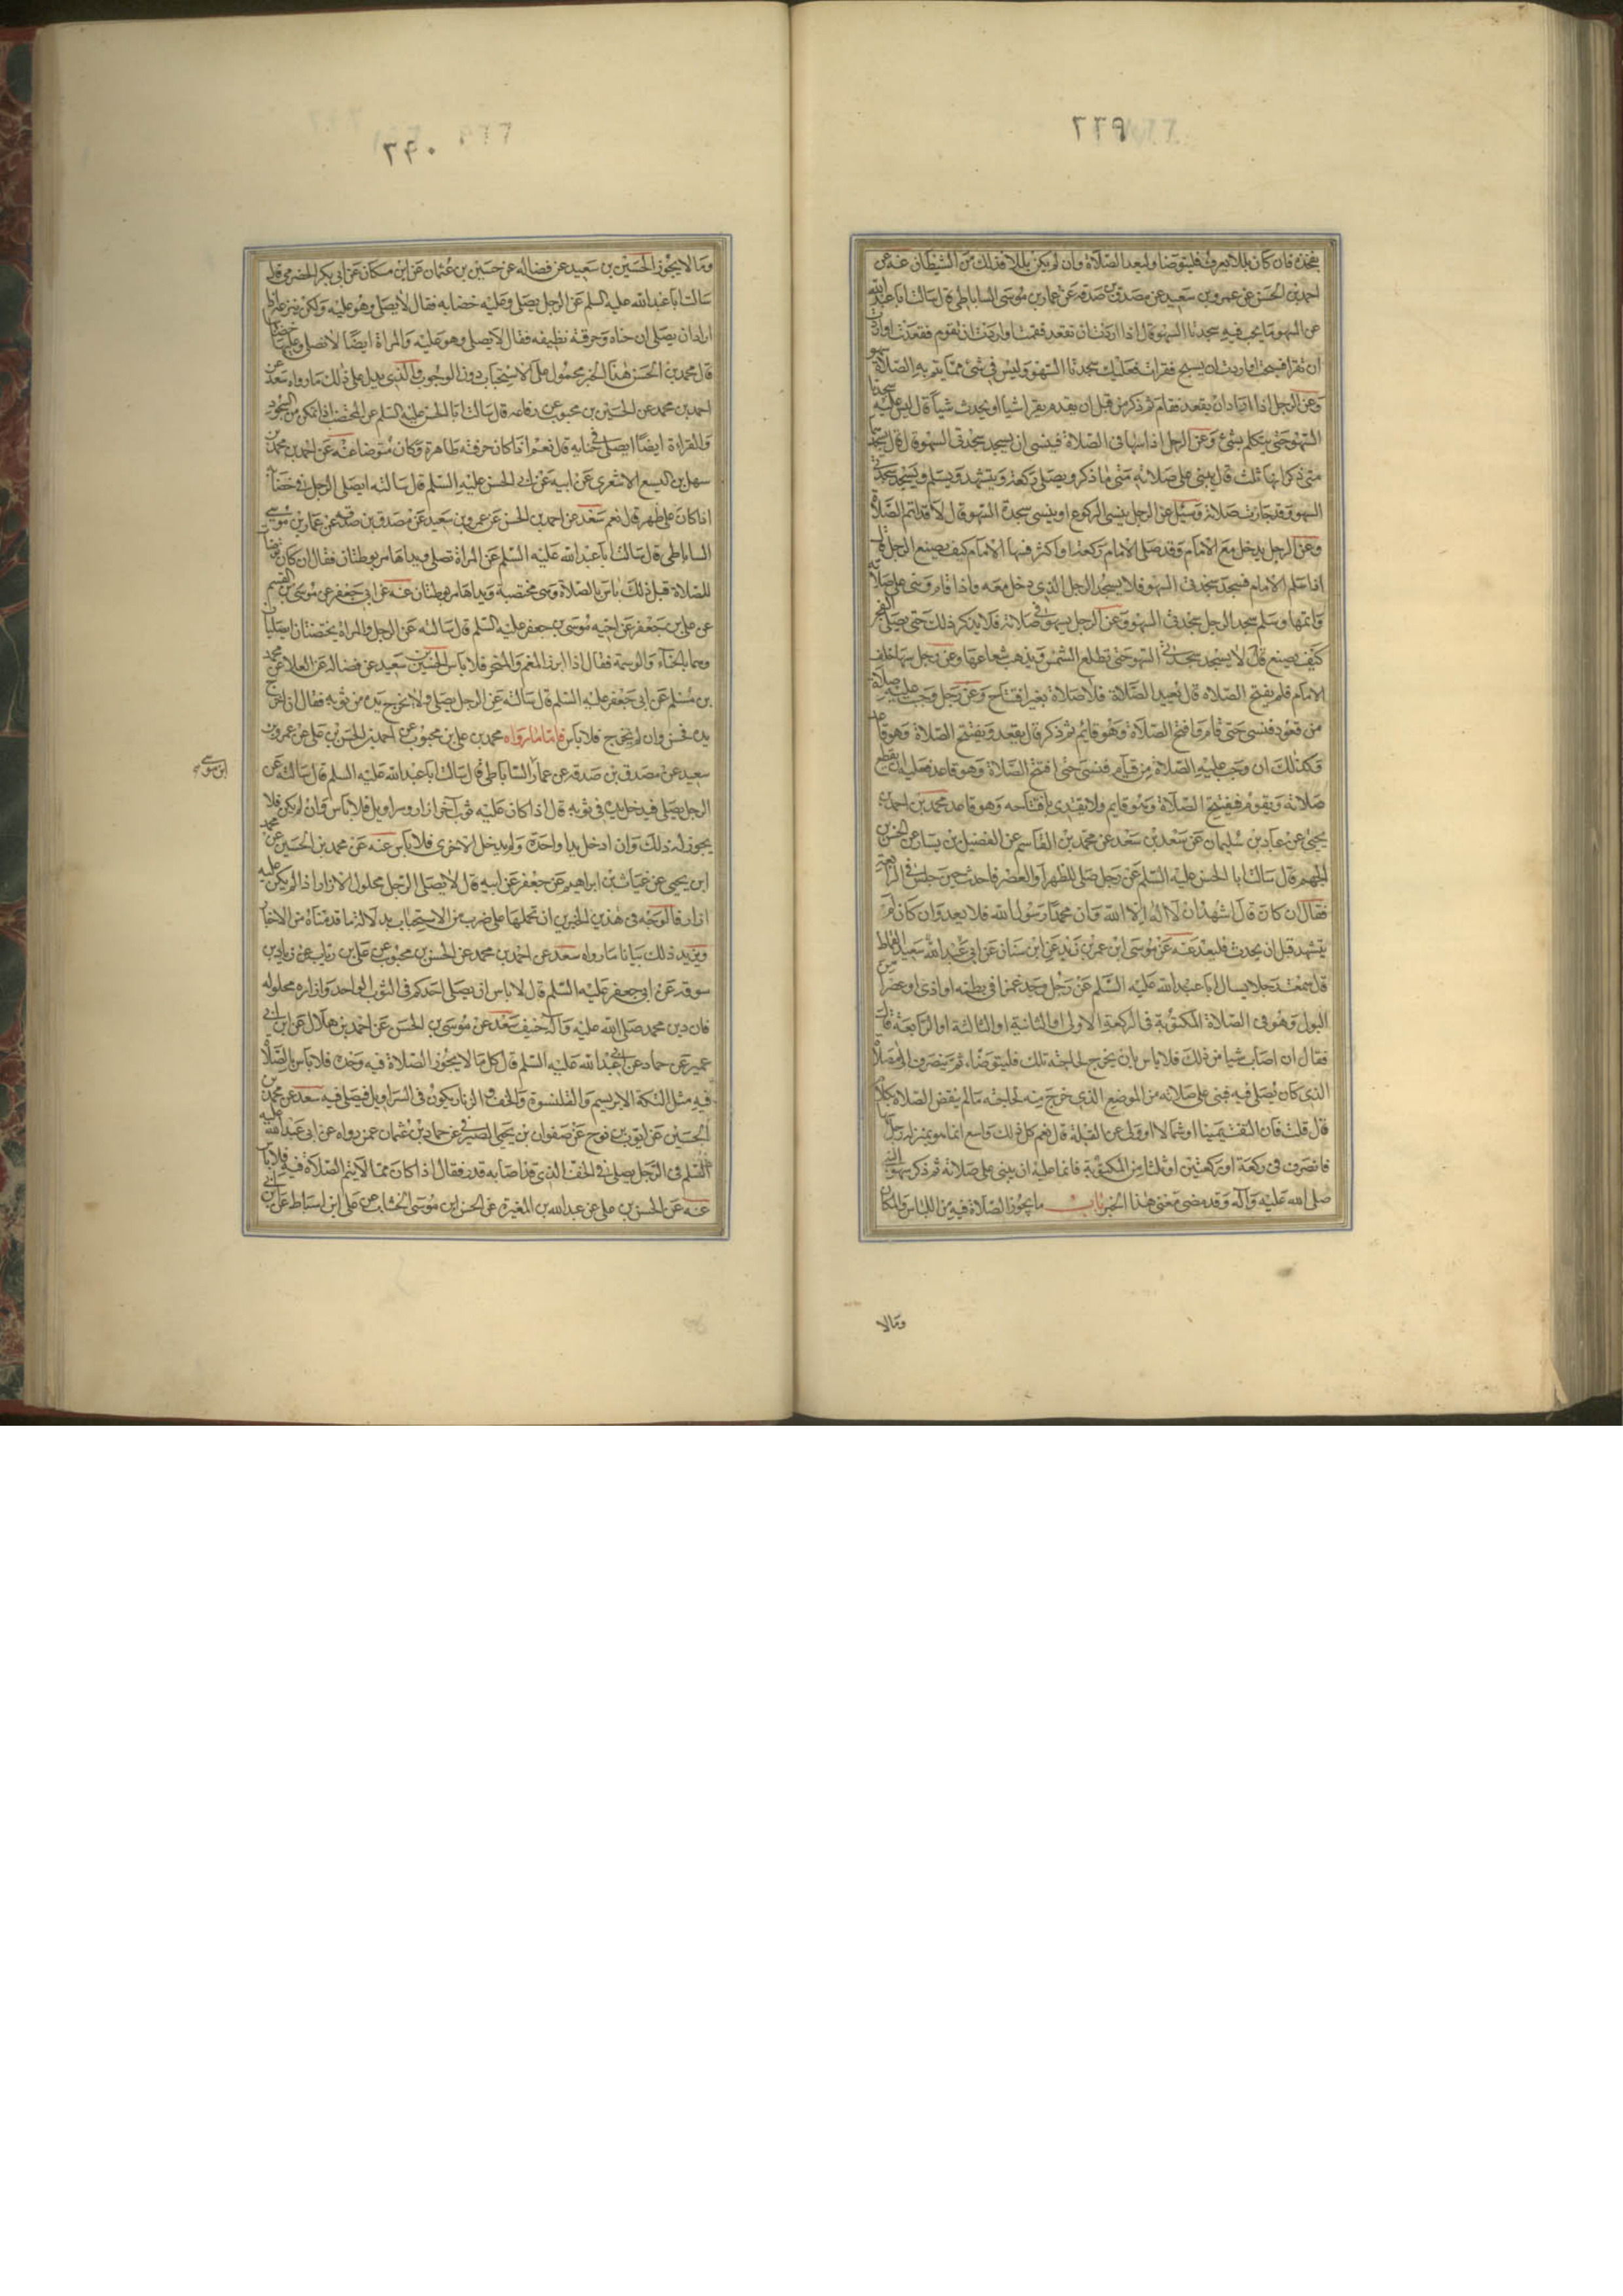 ٢٢٩
فخذه فان كان بللا يعرف فليتوضا وليعد الصلاة وان لم يكن بللا فذلك من الشيطان عنه عن
احمد بن الحسن عن عمرو بن سعيد عن مصدق بن صدقه عن عمار بن موسى الساباطى قال سالت ابا عبد الله
عن السهو ما يجب فيه سجدتا السهو قال اذا اردت ان تقعد فقمت او اردت ان تقوم فقعدت او اردت
ان تقرا فسبحت او اردت ان تسبح فقرات فعليك سجدتا السهو وليس فى شئ مما يتم به الصلاة سهو
وعن الرجل اذا اراد ان يقعد فقام ثم ذكر من قبل ان يقدم يقرا شيا او يحدث شيا قال ليس عليه سجدتا
السهو حتى يتكلم بشئ وعن الرجل اذا سها فى الصلاة فينسى ان يسجد سجدتى السهو قال يسجدها
متى ذكر قال يبنى على صلاته متى ما ذكر ويصلى ركعة ويتشهد ويسلم ويسجد سجدتى
السهو وقد جازت صلاته وسئل عن الرجل ينسى الركوع او ينسى سجدة السهو قال لا قد اتم الصلاة
وعن الرجل يدخل مع الامام وقد صلى الامام ركعة او اكثر فسها الامام كيف يصنع الرجل قال
اذا سلم الامام فسجد سجدتى السهو فلا يسجد الرجل الذى دخل معه واذا قام وبنى على صلاته
واتمها وسلم سجد الرجل سجدتى السهو وعن الرجل يسهو فى صلاته فلا يذكر ذلك حتى يصلى الفجر
كيف يصنع قال لا يسجد سجدتى السهو حتى تطلع الشمس ويذهب شعاعها وعن رجل سها خلف
الامام فلم يفتتح الصلاه قال يعيد الصلاة فلا صلاة بغير افتتاح وعن رجل وجبت عليه صلاة
من قعود فنسى حتى قام وافتتح الصلاة وهو قايم ثم ذكر قال يقعد ويفتتح الصلاة وهو قاعد
وكذلك ان وجب عليه الصلاة من قيام فنسى حتى افتتح الصلاة وهو قاعد فعليه ان يقطع
صلاته ويقوم فيفتتح الصلاة وهو قايم ولا يقتدى بافتتاحه وهو قاعد محمد بن احمد بن
يحيى عن عباد بن سليمان عن سعد بن سعد عن محمد بن القاسم عن الفضيل بن يسار عن الحسن بن
الجهم قال سالت ابا الحسن عليه السلم عن رجل صلى الظهر او العصر فاحدث حين جلس فى الرابعة
فقال ان كان قال اشهد ان لا اله الا الله وان محمدا رسول الله فلا يعد وان كان لم
يتشهد قبل ان يحدث فليعد عنه عن موسى ابن عمر بن يزيد عن ابن سنان عن ابى عبد الله سعيد القماط
قال سمعت رجلا يسال ابا عبد الله عليه السلم عن رجل وجد غمزا فى بطنه او اذى او عصرا من
البول وهو فى الصلاة المكتوبة فى الركعة الاولى او الثانية او الثالثة او الرابعة قال
فقال ان اصاب شيا من ذلك فلا باس بان يخرج لحاجته تلك فليتوضاء ثم ينصرف الى مصلاه
الذى كان يصلى فيه فيبنى على صلاته من الموضع الذى خرج منه لحاجته ما لم ينقض الصلاه بكلام
قال قلت فان التفت يمينا او شمالا او ولى عن القبلة قال نعم كل ذلك واسع انما هو بمنزلة رجل سها
فانصرف فى ركعة او ركعتين او ثلث من المكتوبة فانما عليه ان يبنى على صلاته ثم ذكر سهو النبى
صلى الله عليه وآله وقد مضى معنى هذا الخبر باب ما يجوز الصلاة فيه من اللباس والمكان
ومالا
وما لا يجوز الحسين بن سعيد عن فضاله عن حسين بن عثمان عن ابن مسكان عن ابى بكر الحضرمى قال
سالت ابا عبد الله عليه السلم عن الرجل يصلى وعليه خضابه فقال لا يصلى وهو عليه ولكن ينزعه اذا
اراد ان يصلى ان حناه وخرقته نظيفه فقال لا يصلى وهو عليه والمراة ايضا لا تصلى وعليها خضابها
قال محمد بن الحسن هذا الخبر محمول على الاستحباب دون الوجوب والذى يدل على ذلك ما رواه سعد عن
احمد بن محمد عن الحسين بن محبوب عن رفاعه قال سالت ابا الحسن عليه السلم عن المختضب اذا تمكن من السجود
والقراءة ايضا ايصلى فى حنايه قال نعم اذا كان خرقته طاهرة وكان متوضا عنه عن احمد بن محمد بن
سهل بن اليسع الاشعرى عن ابيه عن ابى الحسن عليه السلم قال سالته ايصلى الرجل فى خضابه
اذا كان على طهر قال نعم سعد عن احمد بن الحسن عن عمرو بن سعيد عن مصدق بن صدقه عن عمار بن موسى
الساباطى قال سالت ابا عبد الله عليه السلم عن المراة تصلى ويداها مربوطتان فقال ان كان توضات
للصلاة قبل ذلك فلا باس بالصلاة وهى مختضبة ويداها مربوطتان عنه عن ابى جعفر عن موسى بن القسم
عن على بن جعفر عن اخيه موسى بن جعفر عليه السلم قال سالته عن الرجل والمراة يختضبان ايصليان
وهما بالحناء والوسمة فقال اذا ابرز الفم والمنخر فلا باس الحسين بن سعيد عن فضاله عن العلا عن محمد
بن مسلم عن ابى جعفر عليه السلم قال سالته عن الرجل يصلى ولا يخرج يده من ثوبه فقال ان اخرج
يده فحسن وان لم يخرج فلا باس فاما ما رواه محمد بن على بن محبوب عن احمد بن الحسن بن على عن عمرو بن
سعيد عن مصدق بن صدقه عن عمار الساباطى قال سالت ابا عبد الله عليه السلم قال سالته عن
ابن موسى
الرجل يصلى فيدخل يده فى ثوبه قال اذا كان عليه ثوب آخر ازار او سراويل فلا باس وان لم يكن فلا
يجوز له ذلك وان ادخل يدا واحدة ولم يدخل الاخرى فلا باس عنه عن محمد بن الحسين عن محمد
ابن يحيى عن غياث بن ابراهيم عن جعفر عن ابيه قال لا يصلى الرجل محلول الازرار اذا لم يكن عليه
ازار فالوجه فى هذين الخبرين ان نحملهما على ضرب من الاستحباب بدلالة ما قدمناه من الاخبار
ويزيد ذلك بيانا ما رواه سعد عن احمد بن محمد عن الحسن بن محبوب عن على بن رياب عن زياد بن
سوقه عن ابى جعفر عليه السلم قال لا باس ان يصلى احدكم فى الثوب الواحد وازراره محلوله
فان دين محمد صلى الله عليه وآله حنيف سعد عن موسى بن الحسن عن احمد بن هلال عن ابن ابى
عمير عن حماد عن ابى عبد الله عليه السلم قال كل ما لا يجوز الصلاة فيه وحده فلا باس بالصلاة
فيه مثل التكة الابريسم والقلنسوة والخف والزنار يكون فى السراويل فيصلى فيه سعد عن محمد بن
الحسين عن ايوب بن نوح عن صفوان بن يحيى الصيرفى عن حماد بن عثمان عمن رواه عن ابى عبد الله عليه
السلم فى الرجل يصلى فى الخف الذى قد اصابه قذر فقال اذا كان مما لا يتم الصلاة فيه فلا باس
عنه عن الحسن بن على عن عبد الله بن المغيرة عن الحسن ابن موسى الخشاب عن على ابن اسباط عن ابن ابى